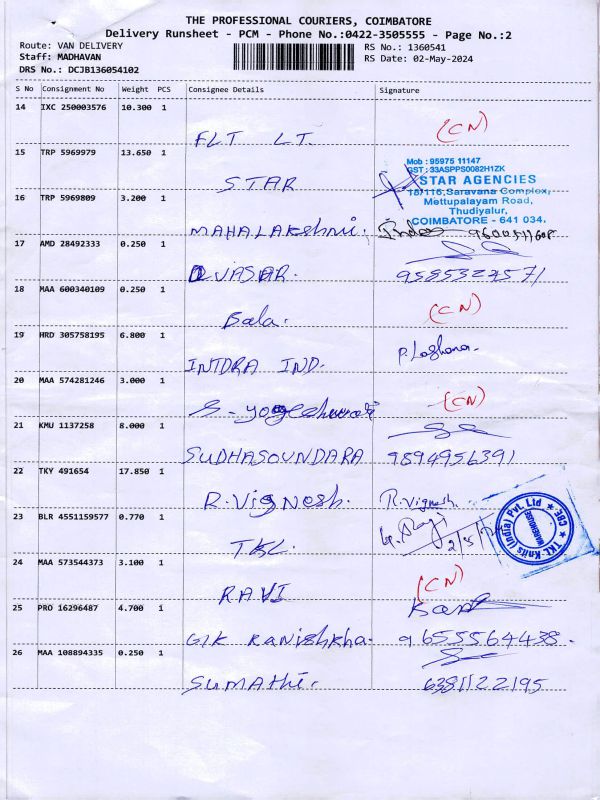 THE PROFESSIONAL COURIERS, COIMBATORE
Delivery Runsheet - PCM - Phone No.:0422-3505555 - Page No.:2
Route: VAN DELIVERY RS No.: 1360541
Staff: MADHAVAN RS Date: 02-May-2024
DRS No.: DCJB136054102
S No Consignment No Weight PCS Consignee Details Signature
14 IXC 250003576 10.300 1
FLT LT. (CN)
15 TRP 5969979 13.650 1
STAR
Mob : 95975 11147
GST : 33ASPPS0082H1ZK
STAR AGENCIES
Saravana Complex,
Mettupalayam Road,
Thudiyalur,
COIMBATORE - 641 034.
16 TRP 5969809 3.200 1
MAHALAKshmi.
17 AMD 28492333 0.250 1
9585327571
18 MAA 600340109 0.250 1
Bala. (CN)
19 HRD 305758195 6.800 1
INTDRA IND.
20 MAA 574281246 3.000 1
(CN)
21 KMU 1137258 8.000 1
SUDHASOUNDARA 9894956391
22 TKY 491654 17.850 1
R. Vignesh. R. Vignesh
23 BLR 4551159577 0.770 1
TKL.
TKL Knits (India) Pvt. Ltd
WAREHOUSE
CBE
24 MAA 573544373 3.100 1
RAVI (CN)
25 PRO 16296487 4.700 1
GIK Kanishkha. 9655564438.
26 MAA 108894335 0.250 1
Sumathi. 6381122195